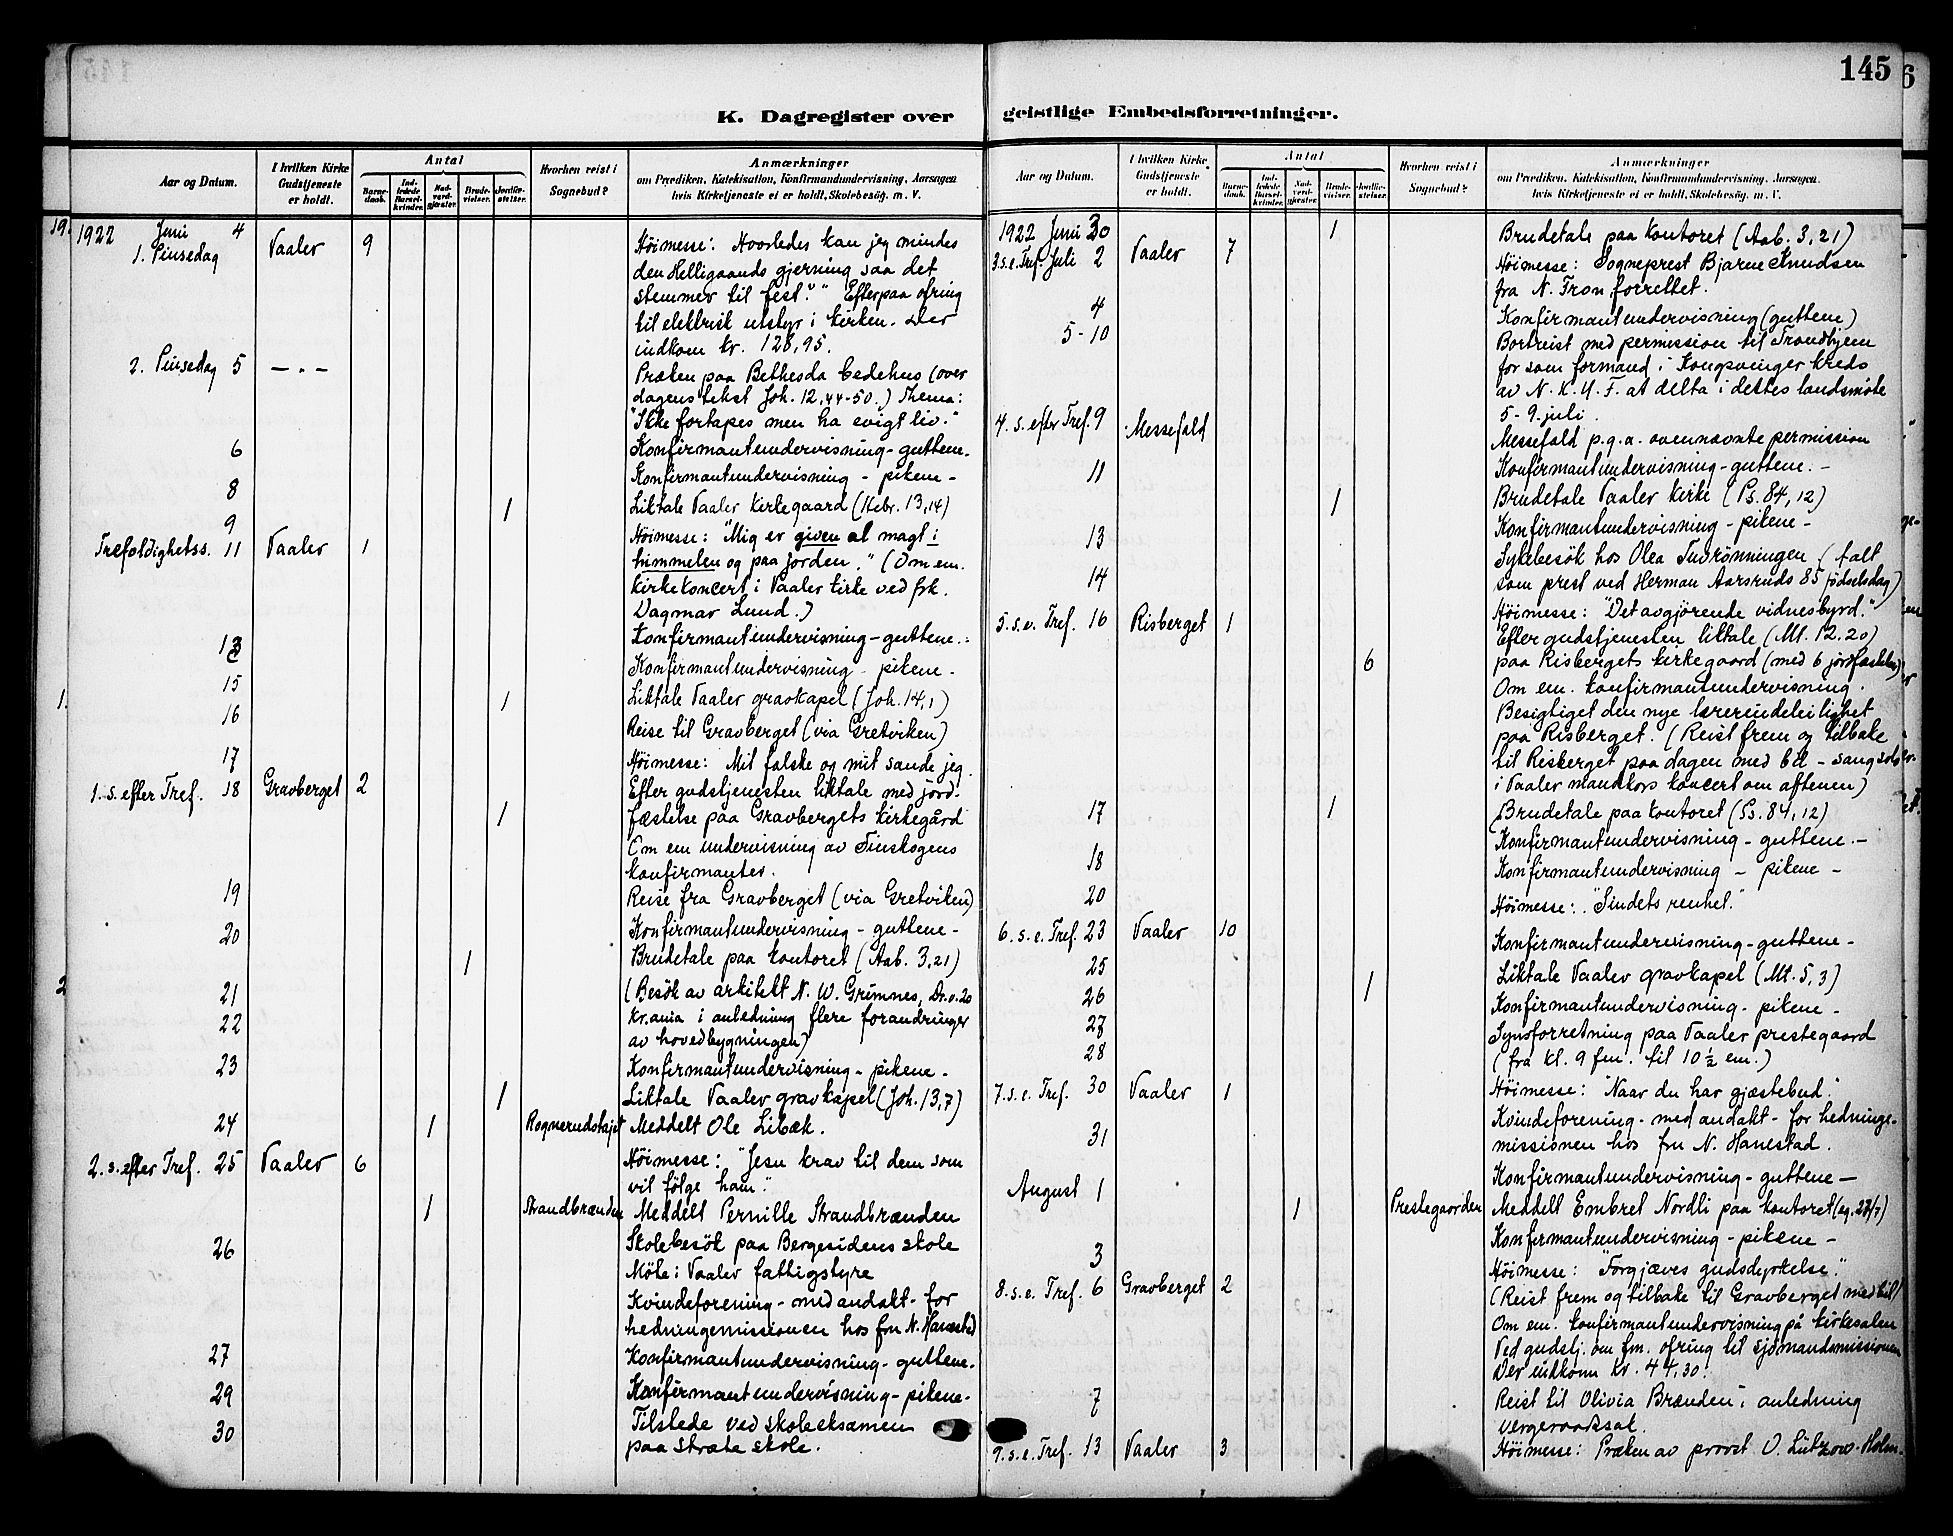 145
K. Dagregister over
geistlige Embedsforretninger.
Aar og Datum.
I hvilken Kirke
Gudstjeneste
er holdt.
Antal
Barne-
daab.
Ind-
ledede
Barsel-
kvinder.
Nad-
verd-
gjester.
Brude-
vielser.
Jordfæ-
stelser.
Hvorhen reist i
Sognebud?
Anmærkninger
om Prædiken, Katekisation, Konfirmandundervisning, Aarsagen
hvis Kirketjeneste ei er holdt, Skolebesøg. m. V.
1922 Juni 4
1. Pinsedag Vaaler 9 Höimesse: Hvorledes kan jeg mindes
den Helligaands gjerning saa det
stemmer til fest?" Efterpaa ofring
til elektrisk utstyr i kirken. Der
indkom kr. 128,95.
2. Pinsedag 5 — " — Præken paa Bethesda bedehus (over
dagens tekst Joh. 12,44-50.) Thema:
"Ikke fortapes men ha evigt liv."
6 Konfirmantundervisning - guttene.
8 Konfirmantundervisning - pikene -
9 1 Liktale Vaaler kirkegaard (Hebr. 13,14)
Trefoldighetss. 11 Vaaler 1 Höimesse: "Mig er given al magt i
himmelen og paa jorden." (Om em.
kirkekoncert i Vaaler kirke ved frk.
Dagmar Lund.)
13 Konfirmantundervisning - guttene.
15 Konfirmantundervisning - pikene -
16 1 Liktale Vaaler gravkapel (Joh. 14,1)
17 Reise til Gravberget (via Gretviken)
1. s. efter Tref. 18 Gravberget 2 Höimesse: Mit falske og mit sande jeg.
1 Efter gudstjenesten liktale med jord-
fæstelse paa Gravbergets kirkegård
Om em undervisning av Finskogens
konfirmanter.
19 Reise fra Gravberget (via Gretviken)
20 Konfirmantundervisning - guttene -
1 Brudetale paa kontoret (Aab. 3,21)
21 (Besök av arkitekt N. W. Grimnes,
22 Kr.ania i anledning flere forandringer
av hovedbygningen)
23 Konfirmantundervisning - pikene -
1 Liktale Vaaler gravkapel (Joh. 13,7)
24 1 Rognerudstajet Meddelt Ole Libæk.
2. s. efter Tref. 25 Vaaler 6 Höimesse: "Jesu krav til dem som
vil fölge ham."
1 Strandbrænden Meddelt Pernille Strandbrænden
26 Skolebesök paa Bergesidens skole
Möte i Vaaler fattigstyre
Kvindeforening - med andakt - for
hedningemissionen hos fru N. Hanestad
27 Konfirmantundervisning - guttene.
29 Konfirmantundervisning - pikene -
30 Tilstede ved skoleeksamen
paa Stræte skole.
Aar og Datum.
I hvilken Kirke
Gudstjeneste
er holdt.
Antal
Barne-
daab.
Ind-
ledede
Barsel-
kvinder.
Nad-
verd-
gjester.
Brude-
vielser.
Jordfæ-
stelser.
Hvorhen reist i
Sognebud?
Anmærkninger
om Prædiken, Katekisation, Konfirmandundervisning, Aarsagen
hvis Kirketjeneste ei er holdt, Skolebesøg. m. V.
1922 Juni 30 1 Brudetale paa kontoret (Aab. 3,21)
3. s. e. Tref. Juli 2 Vaaler 7 Höimesse: Sogneprest Bjarne Knudsen
fra N. Fron forrettet.
4 Konfirmantundervisning (guttene)
5-10 Bortreist med permission til Trondhjem
for som formand i Kongsvinger kreds
av N. K. U. F. at delta i dettes landsmöte
5-9. juli.
4. s. efter Tref. 9 Messefald Messefald p.g.a. ovennævnte permission
11 Konfirmantundervisning - guttene. -
1 Brudetale Vaaler kirke (Ps. 84,12)
13 Konfirmantundervisning - pikene -
14 Sykebesök hos Olea (talt
som prest ved Herman Aarsruds 85 födselsdag)
5. s. e. Tref. 16 Risberget 1 Höimesse: "Det avgjörende vidnesbyrd."
Efter gudstjenesten liktale (Mt. 12.20)
6 paa Risbergets kirkegaard (med 6 jordfæstelser)
Om em. konfirmantundervisning.
Besigtiget den nye lærerindeleilighet
paa Risberget. (Reist frem og tilbake
til Risberget paa dagen med bil - sang solo
i Vaaler mandkors koncert om aftenen)
17 1 Brudetale paa kontoret (Ps. 84,12)
18 Konfirmantundervisning - guttene. -
20 Konfirmantundervisning - pikene -
6. s. e. Tref. 23 Vaaler 10 Höimesse: "Sindets renhet."
25 Konfirmantundervisning - guttene -
26 1 Liktale Vaaler gravkapel (Mt. 5,3)
27 Konfirmantundervisning - pikene -
28 Synsforretning paa Vaaler prestegaard
(fra kl. 9 fm. til 10 ½ em.)
7. s. e. Tref. 30 Vaaler 1 Höimesse: "Naar du har gjæstebud".
31 Kvindeforening - med andakt - for hedninge-
missionen hos fru N. Hanestad.
August 1 Konfirmantundervisning - guttene -
1 Prestegaarden Meddelt Embret Nordli paa kontoret
3 Konfirmantundervisning - pikene -
8. s. e. Tref. 6 Gravberget 2 Höimesse: "Forgjæves gudsdyrkelse."
(Reist frem og tilbake til Gravberget med bil)
Om em. konfirmantundervisning på kirkesalen
Ved gudstj. om fm. ofring til sjömandsmissionen
Der indkom kr. 44,30.
7 Reist til Olivia Brænden i anledning
vergeraadssak.
9. s. e. Tref. 13 Vaaler 3 Höimesse: Præken av provst O. Lützow-Holm.